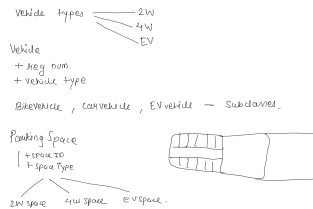 Vehicle types 2W
4W
EV
Vehicle
+ reg num.
+ vehicle type
Bikevehicle, carvehicle, EVvehicle - subclasses.
Parking Space
+ space ID
+ space Type
2W space 4W space EV space.